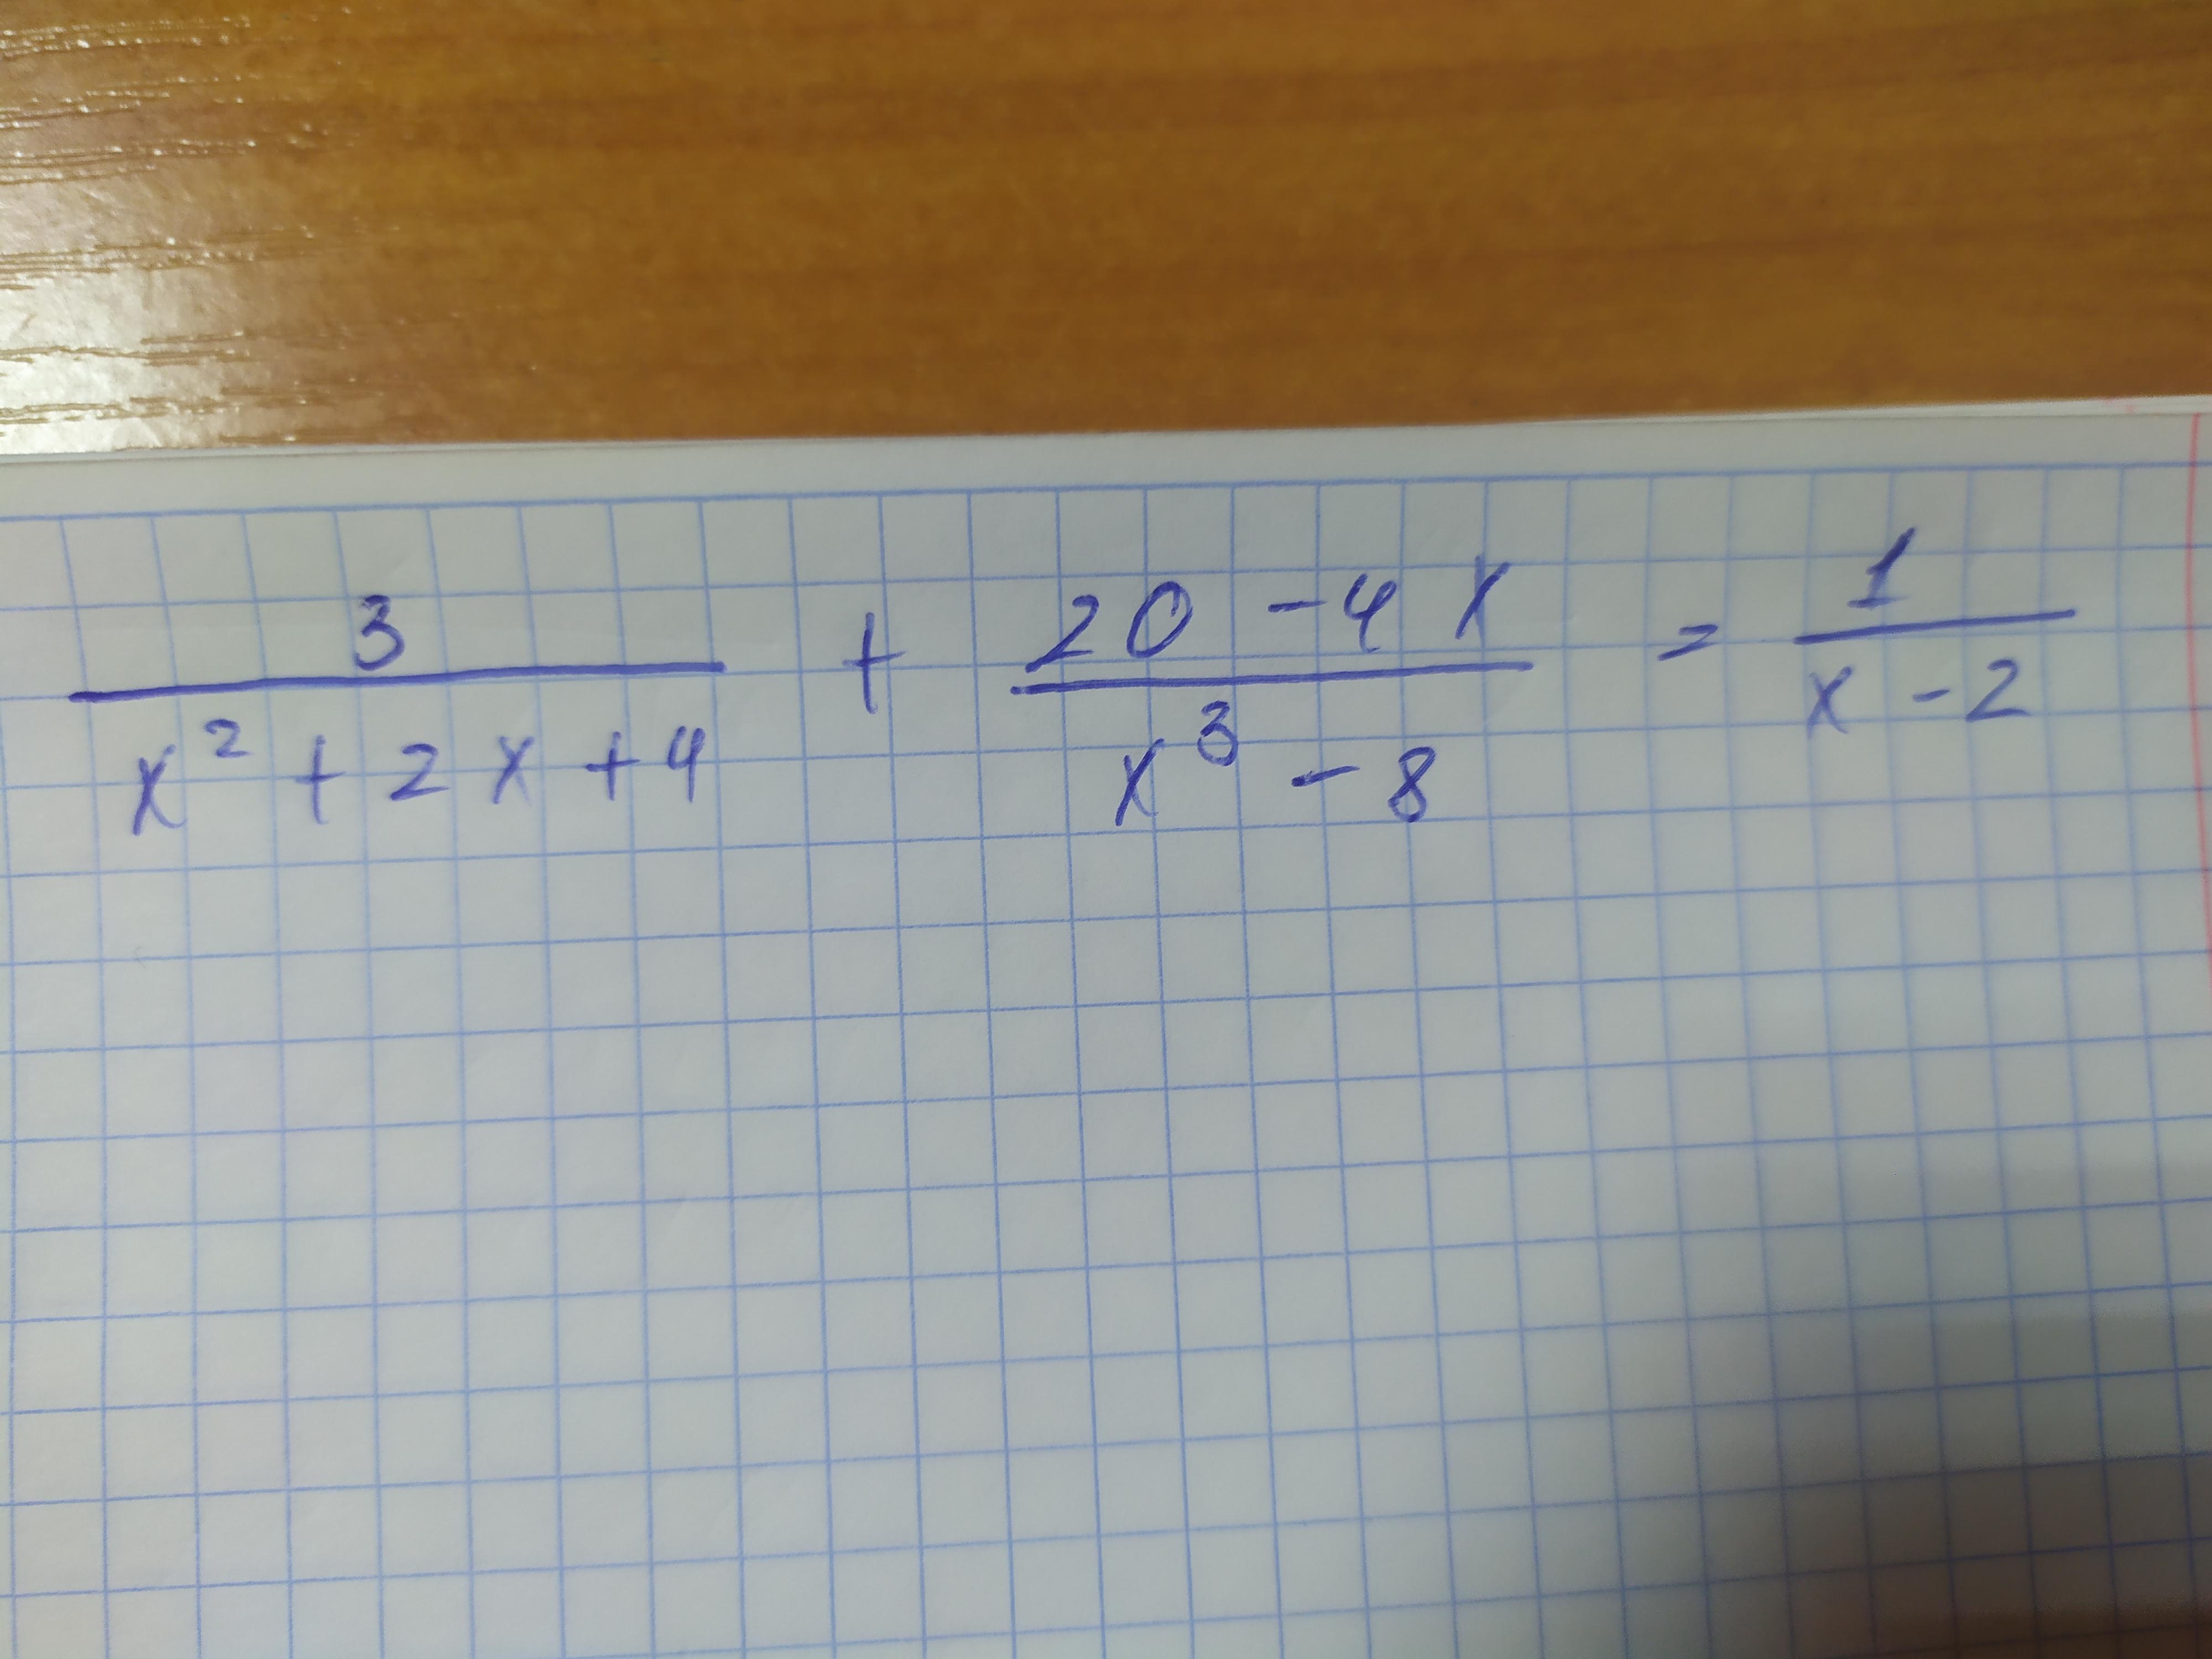 3/(x² + 2x + 4) + (20 - 4x)/(x³ - 8) = 1/(x - 2)